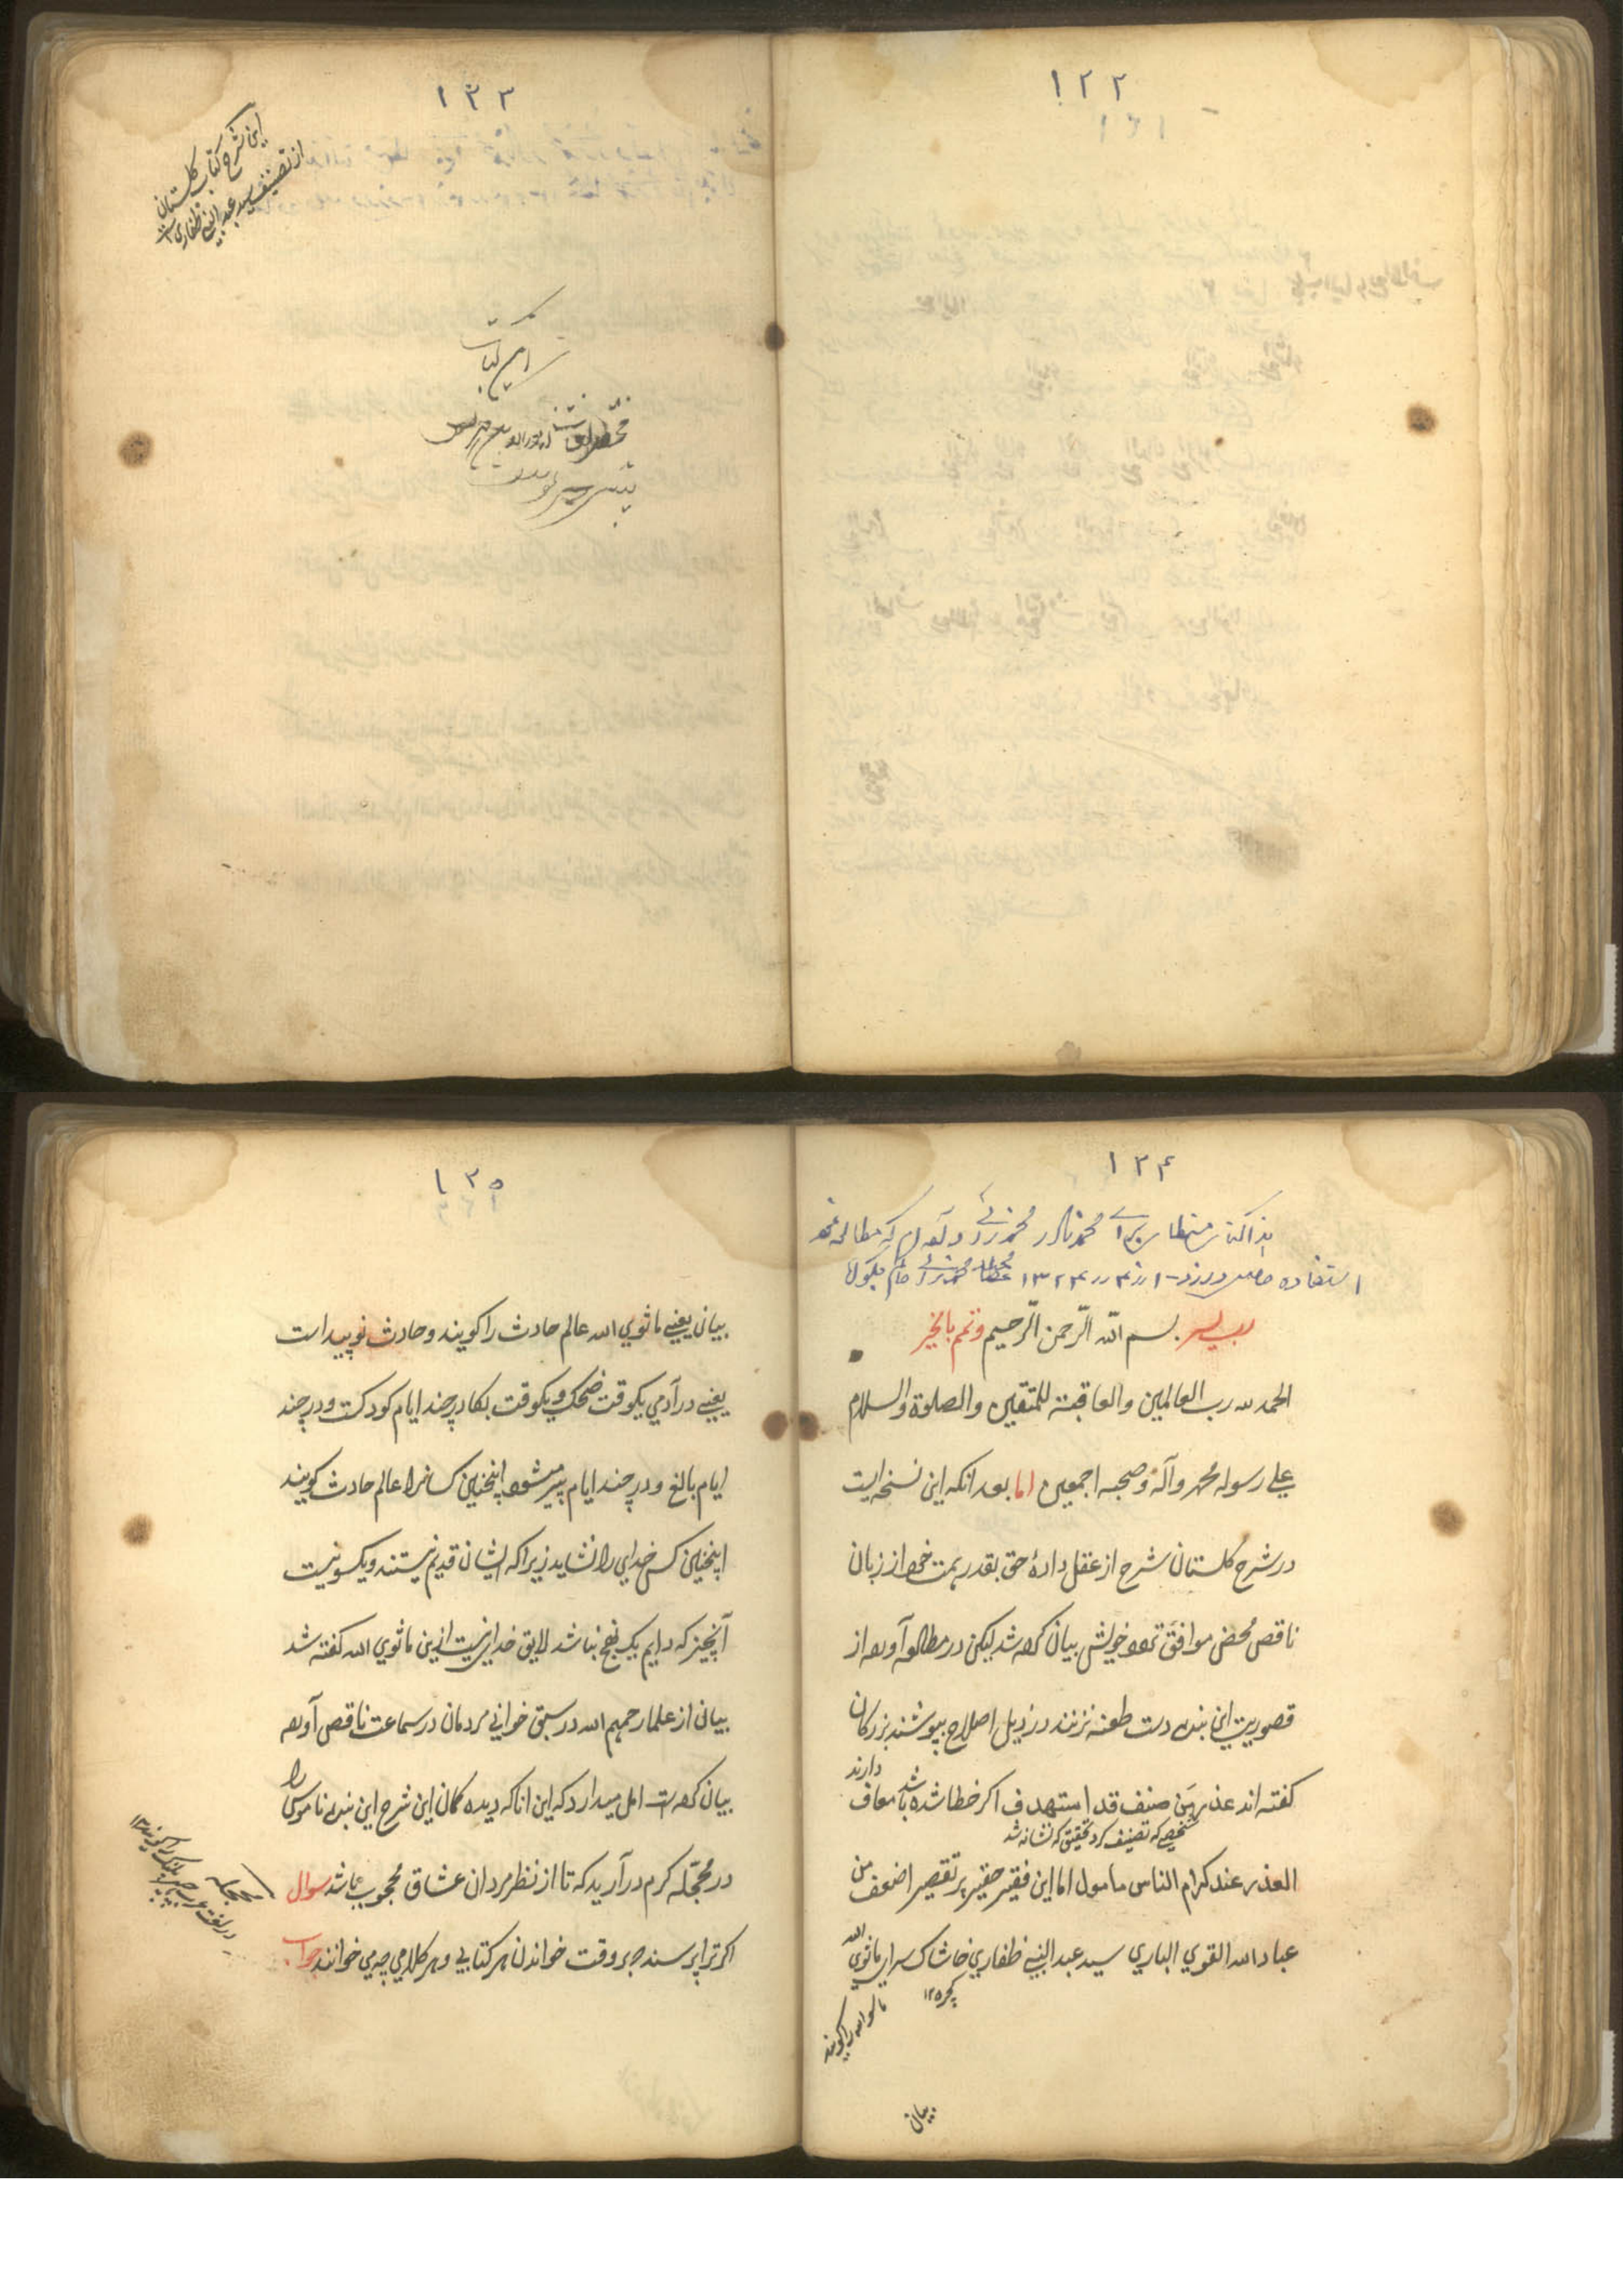 ۱۲۲
۱۲۳
این شرح کتاب گلستان
از تصنیف سید عبدالنبی ظفاری است
این کتاب
۱۲۴
محمد نادر محمدزئی که مطالعه
استفاده
رب یسر بسم الله الرحمن الرحیم وتمم بالخیر
الحمد لله رب العالمین والعاقبة للمتقین والصلوة والسلام
علی رسوله محمد وآله وصحبه اجمعین اما بعد انکه این نسخه ایست
در شرح کلستان شرح از عقل دادهٔ حق بقدر همت خود از زبان
ناقص محض موافق خویش بیان کرده شد لیکن در مطالعه آورده از
قصوریت این بنده دست طعنه نزنند در ذیل اصلاح بپوشند بزرکان
کفته اند عذر من صنف قد استهدف اکر خطا شده باشد معاف دارند
شخصی که تصنیف کرد تحقیق که نشانه شد
العذر عند کرام الناس مامول اما این فقیر حقیر پر تقصیر اضعف من
عباد الله القوی الباری سید عبد النبی ظفاری خاشاک سرای ماثوی الله
ماسوا الله را کویند
بیان
۱۲۵
بیان یعنی ماثوی الله عالم حادث را کویند و حادث نو پیدا است
یعنی در آدمی یکوقت ضحک ویکوقت بکا در چند ایام کودکست و در چند
ایام بالغ و در چند ایام پیر میشود اینچنین کسانرا عالم حادث کویند
اینچنین کس خدایی را نشاید زیرا که ایشان قدیم نیستند و یکسو نیست
آنچیز که دایم یک نهج نباشد لایق خدایی نیست ازین ماثوی الله کفته شد
بیان از علما رحمهم الله در سبق خوانی مردمان در سماعت ناقص آورده
بیان کرده است امل میدارد که این انا که دیده کان این شرح این بنده ناموسی را
در محجله کرم در آرید که تا از نظر مردان عشاق محجوب نباشد سوال
اکر ترا پرسند هر وقت خواندن هر کتابی و هر کلامی چه می خوانند جواب
محجله
در لغت عرب را کویند ۱۲